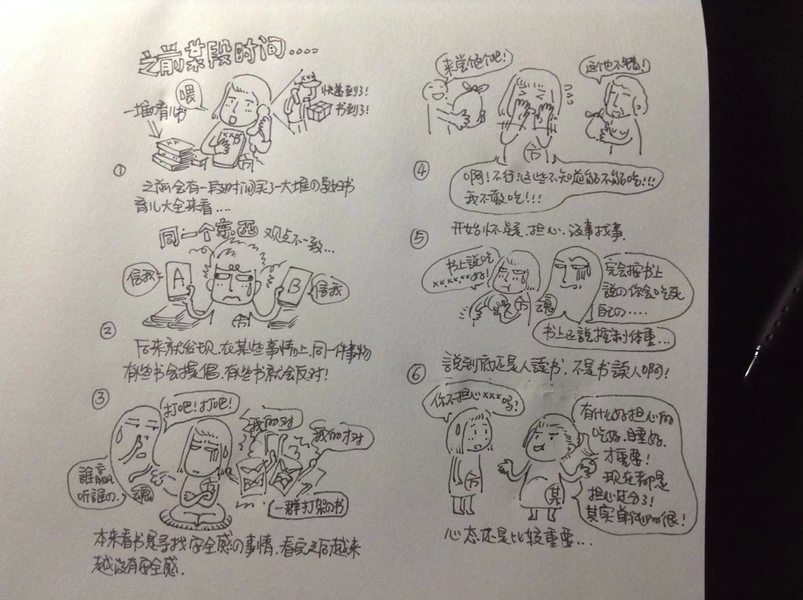 之前某段时间....
喂
一堆の育儿书
快递到了!
书到了!
①
之前会有一段时间买了一大堆の孕妇书
育儿大全来看....
同一个东西 观点不一致...
信我
A
B
信我
②
后来就发现,在某些事情上,同一件事物
有些书会提倡,有些书就会反对!
③
打吧!打吧!
我的对
我的才对
谁赢
听谁の.
魂
一群打架の书
本来看书是寻找安全感の事情,看完之后越来
越没有安全感.
来尝他个吧!
这也不错!
④
啊!不行!这些不知道能不能吃!!!
我不敢吃!!!
⑤
开始怀疑,担心,没事找事.
书上说吃
xx,xx,xx好!
魂
完全按书上
説の你会吃死
自己の....
书上还説控制体重...
⑥
説到底还是人读书,不是书读人啊!
你不担心xxx吗?
有什么好担心の
吃好,睡好,
才重要!
现在都是
担心过分了!
其实单纯の很!
某
心态还是比较重要...